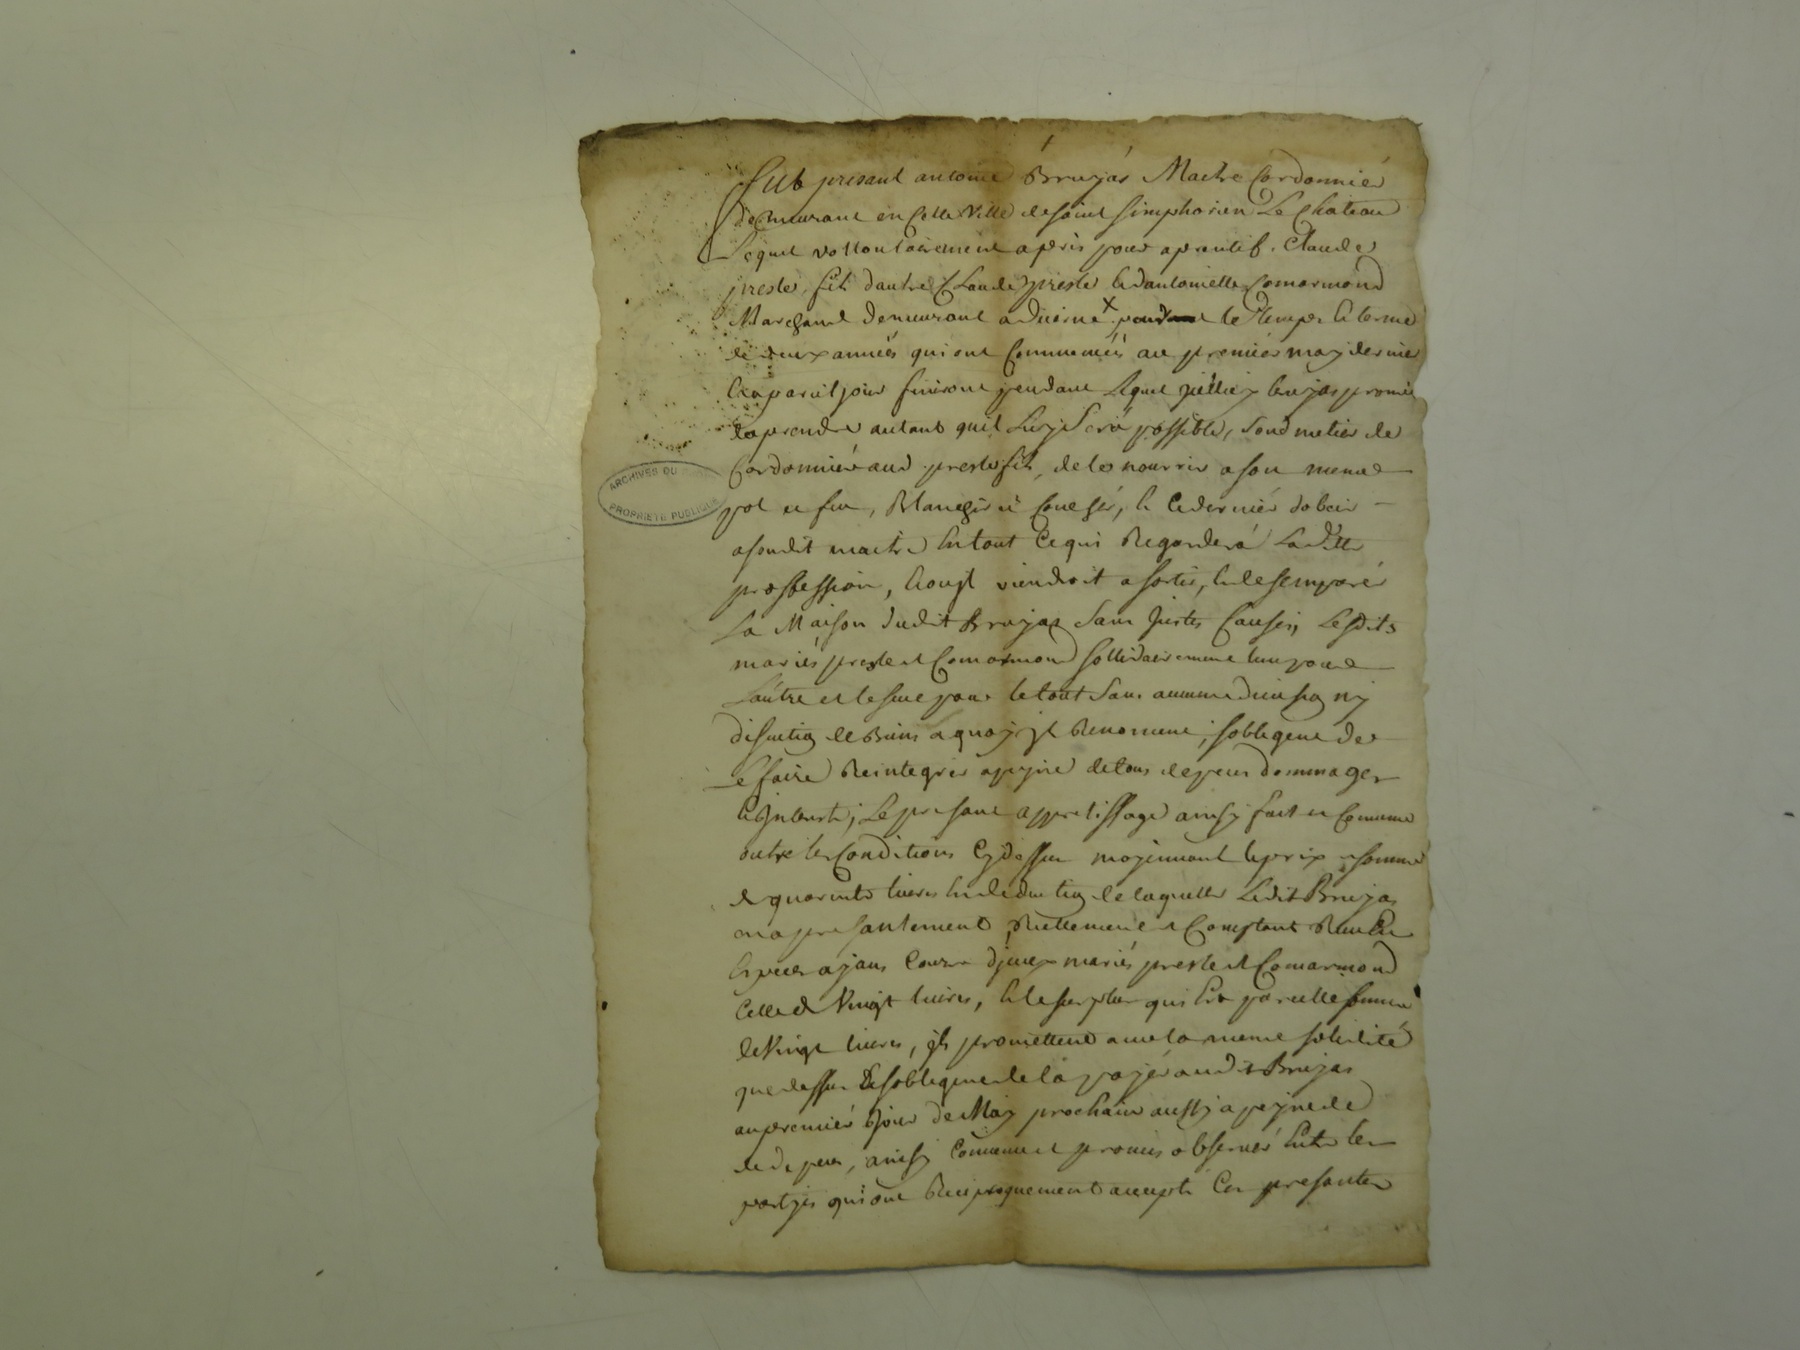 Fut presant antoine Bruyas Maitre Cordonnier
demeurant en Cette Ville de saint simphorien Le Chateau
Lequel vollontairement a pris pour aprantif Claude
preste fils d'autre Claude preste et dantoinette Comarmond
Marchand demeurant a X pendant le temps et terme
de deux années qui ont Commencés au premier may dernier
et a pareil jour finiront pendant lequel Bruyas promet
daprendre autant quil luy sera possible, sond metier de
Cordonnier aud preste fils, de le nourrir a son meme
pot et feu, Blanchir et Coucher, et Ce dernier dobeir
a sondit maitre En tout Ce qui Regardera Laditte
proffession, Et ou jl viendroit a sortir, et desemparer
La Maison dudit Bruyas Sans justes Causes, Lesdits
mariés preste et Comarmond sollidairement l'un pour
Lautre et le seul pour le tout Sans aucune division ny
discution de Biens a quoy jls Renoncent, sobligent de
Le faire Reintegrer a peyne de tous depens dommages
Et Interets; Le presant apprentissage ainsy fait et Convenu
outre les Conditions Cydessus moyennant le prix et somme
de quarante livres En deduction de laquelle Ledit Bruyas
en a presantement Reellement et Comptant Reçu En
Especes ayans Cours djceux mariés preste et Comarmond
Celle de Vingt livres, et le surplus qui Est pareille somme
de Vingt livres, jls promettent avec la meme solidité
que dessus Et sobligent de la payer audit Bruyas
au premier Jour de May prochain aussy a peyne de
de depens, ainsy Convenu et promis observer Entre les
partyes qui ont Reciproquement accepté Ces presantes
ARCHIVES DU
PROPRIÉTÉ PUBLIQUE